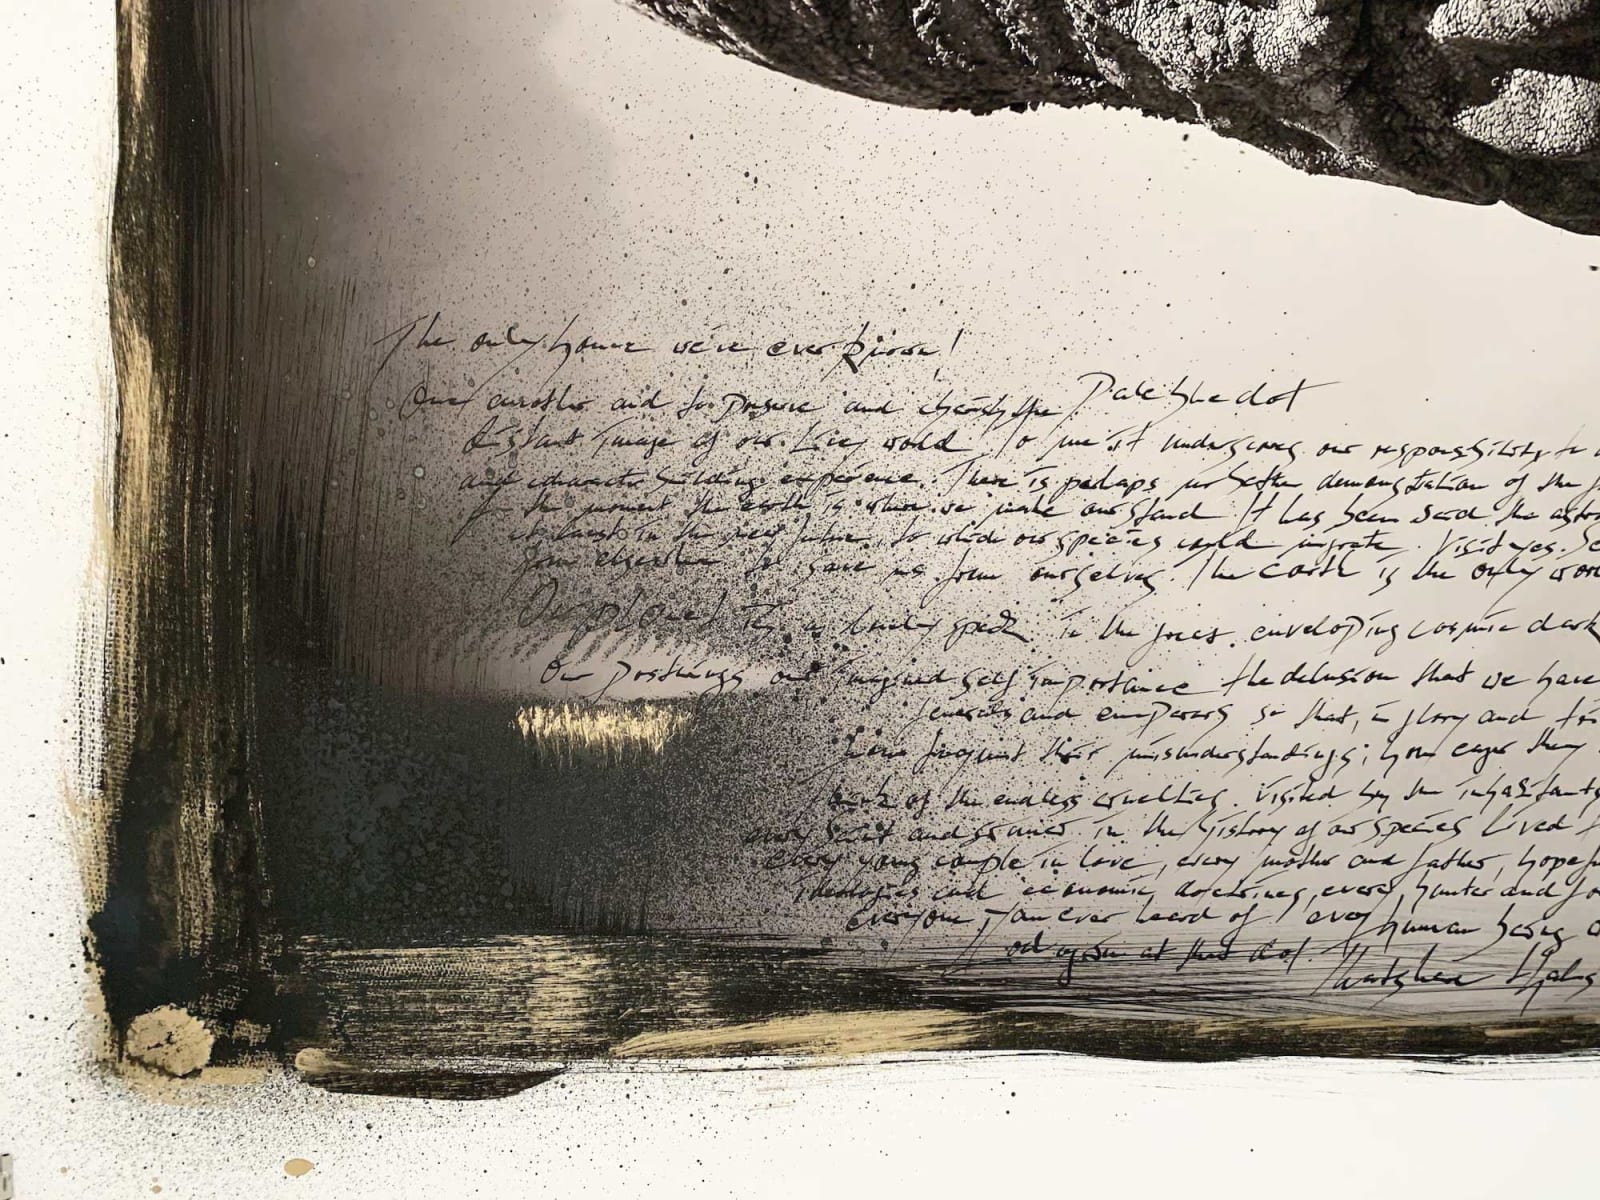 The only home we've ever known!
One another and to preserve and cherish the Pale blue dot
distant image of our tiny world. To me it underscores our responsibility to
and character building experience. There is perhaps no better demonstration of the
for the moment the earth is where we make our stand It has been said the
at least in the near future, to which our species could migrate. Visit, yes.
from elsewhere to save us from ourselves. The earth is the only
Our planet is a lonely speck in the great enveloping cosmic dark
Our posturings our imagined self importance the delusion that we have
generals and emperors so that, in glory and
how frequent their misunderstandings; how eager they
think of the endless cruelties. visited by the inhabitants
every saint and sinner in the history of our species lived
every young couple in love, every mother and father, hopeful
ideologies and economic doctrines, every hunter and
everyone you ever heard of, every human being
at that dot. That's here